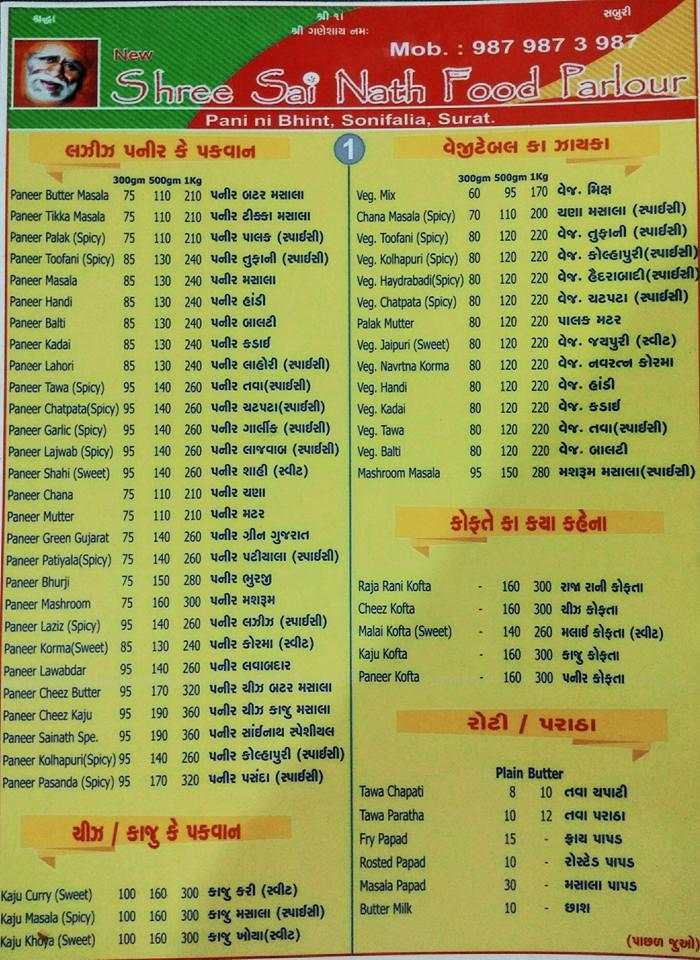 શ્રદ્ધા
શ્રી ૧।
સબુરી
શ્રી ગણેશાય નમઃ
Mob. : 987 987 3 987
New
Shree Sai Nath Food Parlour
Pani ni Bhint, Sonifalia, Surat.
1
લઝીઝ પનીર કે પકવાન
300gm 500gm 1Kg
Paneer Butter Masala 75 110 210 પનીર બટર મસાલા
Paneer Tikka Masala 75 110 210 પનીર ટીક્કા મસાલા
Paneer Palak (Spicy) 75 110 210 પનીર પાલક (સ્પાઈસી)
Paneer Toofani (Spicy) 85 130 240 પનીર તુફાની (સ્પાઈસી)
Paneer Masala 85 130 240 પનીર મસાલા
Paneer Handi 85 130 240 પનીર હાંડી
Paneer Balti 85 130 240 પનીર બાલટી
Paneer Kadai 85 130 240 પનીર કડાઈ
Paneer Lahori 85 130 240 પનીર લાહોરી (સ્પાઈસી)
Paneer Tawa (Spicy) 95 140 260 પનીર તવા(સ્પાઈસી)
Paneer Chatpata(Spicy) 95 140 260 પનીર ચટપટા(સ્પાઈસી)
Paneer Garlic (Spicy) 95 140 260 પનીર ગાર્લીક (સ્પાઈસી)
Paneer Lajwab (Spicy) 95 140 260 પનીર લાજવાબ (સ્પાઈસી)
Paneer Shahi (Sweet) 95 140 260 પનીર શાહી (સ્વીટ)
Paneer Chana 75 110 210 પનીર ચણા
Paneer Mutter 75 110 210 પનીર મટર
Paneer Green Gujarat 75 140 260 પનીર ગ્રીન ગુજરાત
Paneer Patiyala(Spicy) 75 140 260 પનીર પટીયાલા (સ્પાઈસી)
Paneer Bhurji 75 150 280 પનીર ભુરજી
Paneer Mashroom 75 160 300 પનીર મશરૂમ
Paneer Laziz (Spicy) 95 140 260 પનીર લઝીઝ (સ્પાઈસી)
Paneer Korma(Sweet) 85 130 240 પનીર કોરમા (સ્વીટ)
Paneer Lawabdar 95 140 260 પનીર લવાબદાર
Paneer Cheez Butter 95 170 320 પનીર ચીઝ બટર મસાલા
Paneer Cheez Kaju 95 190 360 પનીર ચીઝ કાજુ મસાલા
Paneer Sainath Spe. 95 190 360 પનીર સાંઈનાથ સ્પેશીયલ
Paneer Kolhapuri(Spicy) 95 140 260 પનીર કોલ્હાપુરી (સ્પાઈસી)
Paneer Pasanda (Spicy) 95 170 320 પનીર પસંદા (સ્પાઈસી)
ચીઝ / કાજુ કે પકવાન
Kaju Curry (Sweet) 100 160 300 કાજુ કરી (સ્વીટ)
Kaju Masala (Spicy) 100 160 300 કાજુ મસાલા (સ્પાઈસી)
Kaju Khoya (Sweet) 100 160 300 કાજુ ખોયા(સ્વીટ)
વેજીટેબલ કા ઝાયકા
300gm 500gm 1Kg
Veg. Mix 60 95 170 વેજ. મિક્ષ
Chana Masala (Spicy) 70 110 200 ચણા મસાલા (સ્પાઈસી)
Veg. Toofani (Spicy) 80 120 220 વેજ. તુફાની (સ્પાઈસી)
Veg. Kolhapuri (Spicy) 80 120 220 વેજ. કોલ્હાપુરી(સ્પાઈસી)
Veg. Haydrabadi(Spicy) 80 120 220 વેજ. હૈદરાબાદી(સ્પાઈસી)
Veg. Chatpata (Spicy) 80 120 220 વેજ. ચટપટા (સ્પાઈસી)
Palak Mutter 80 120 220 પાલક મટર
Veg. Jaipuri (Sweet) 80 120 220 વેજ. જયપુરી (સ્વીટ)
Veg. Navrtna Korma 80 120 220 વેજ. નવરત્ન કોરમા
Veg. Handi 80 120 220 વેજ. હાંડી
Veg. Kadai 80 120 220 વેજ. કડાઈ
Veg. Tawa 80 120 220 વેજ. તવા(સ્પાઈસી)
Veg. Balti 80 120 220 વેજ. બાલટી
Mashroom Masala 95 150 280 મશરૂમ મસાલા(સ્પાઈસી)
કોફતે કા કયા કહેના
Raja Rani Kofta - 160 300 રાજા રાની કોફતા
Cheez Kofta - 160 300 ચીઝ કોફતા
Malai Kofta (Sweet) - 140 260 મલાઈ કોફતા (સ્વીટ)
Kaju Kofta - 160 300 કાજુ કોફતા
Paneer Kofta - 160 300 પનીર કોફતા
રોટી / પરાઠા
Plain Butter
Tawa Chapati 8 10 તવા ચપાટી
Tawa Paratha 10 12 તવા પરાઠા
Fry Papad 15 - ફ્રાય પાપડ
Rosted Papad 10 - રોસ્ટેડ પાપડ
Masala Papad 30 - મસાલા પાપડ
Butter Milk 10 - છાશ
(પાછળ જુઓ)